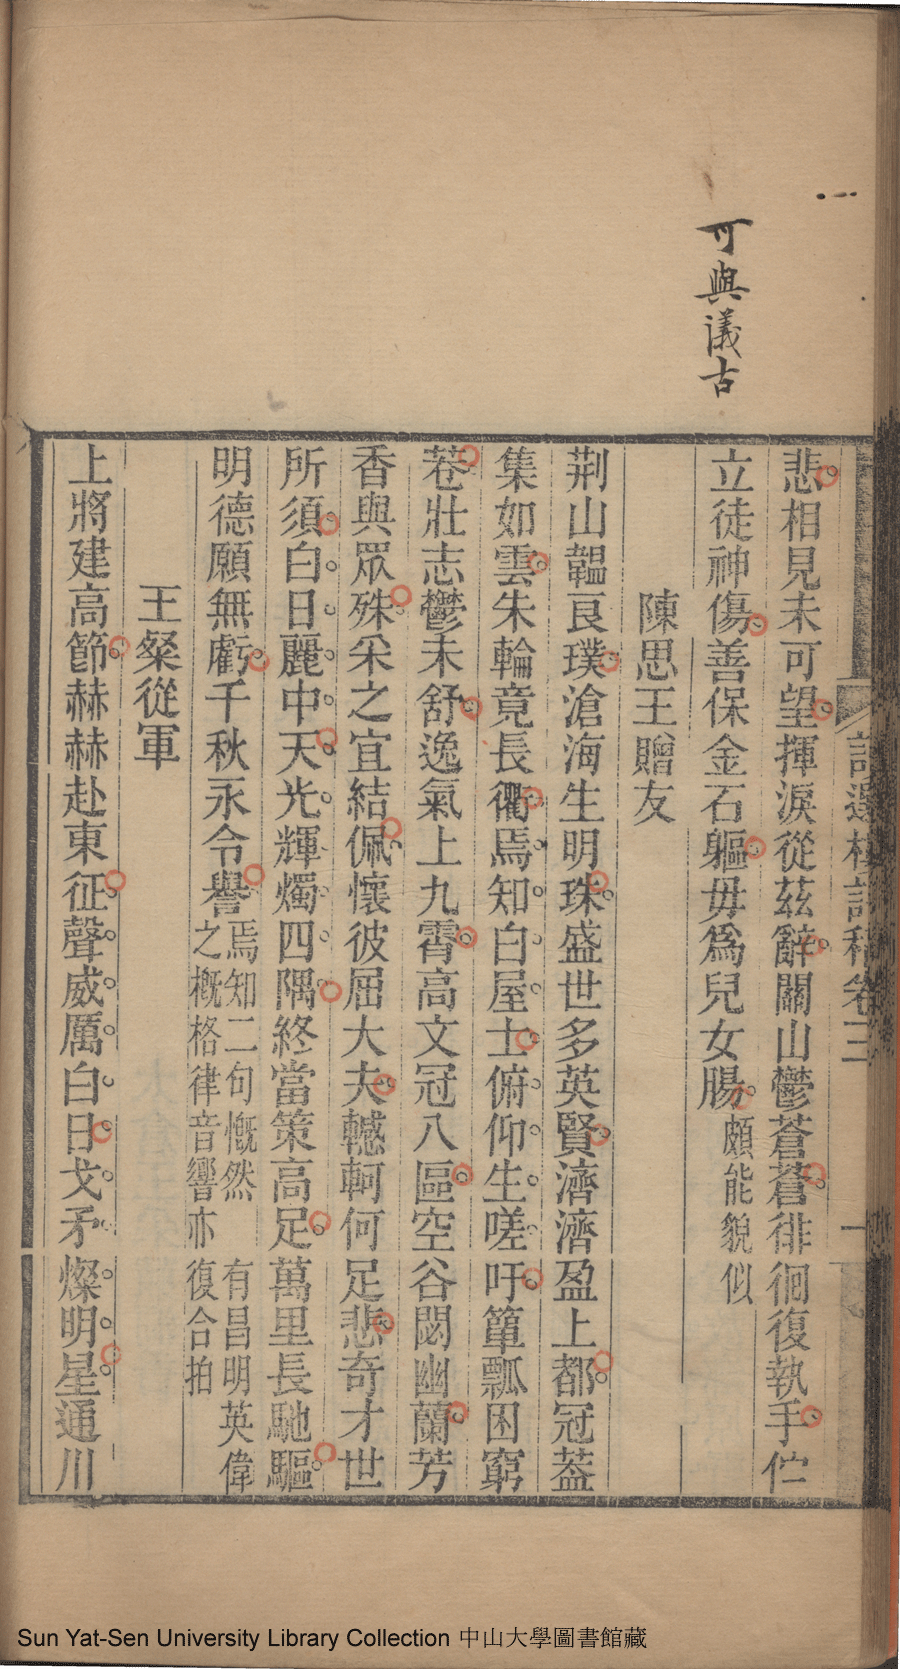 可與議古
悲相見未可望揮淚從茲辭關山鬱蒼蒼徘徊復執手伫
立徒神傷善保金石軀毋為兒女腸頗能貌似
陳思王贈友
荆山韞良璞滄海生明珠盛世多英賢濟濟盈上都冠葢
集如雲朱輪竟長衢焉知白屋士俯仰生嗟吁簞瓢困窮
巷壯志鬱未舒逸氣上九霄高文冠八區空谷閟幽蘭芳
香與眾殊采之宜結佩懷彼屈大夫轗軻何足悲奇才世
所須白日麗中天光輝燭四隅終當策高足萬里長馳驅
明德願無虧千秋永令譽焉知二句慨然有昌明英偉之概格律音響亦復合拍
王粲從軍
上將建高節赫赫赴東征聲威厲白日戈矛燦明星通川
詩選樓詩稿卷三
一
Sun Yat-Sen University Library Collection 中山大學圖書館藏